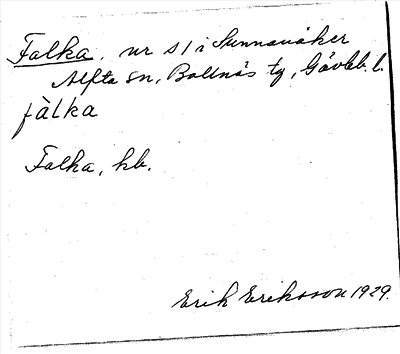 Falka, nr 51 i Sunnanåker
Alfta sn, Bollnäs tg, Gävleb. l.
fàlka
Falka, kb.
Erik Eriksson 1929.